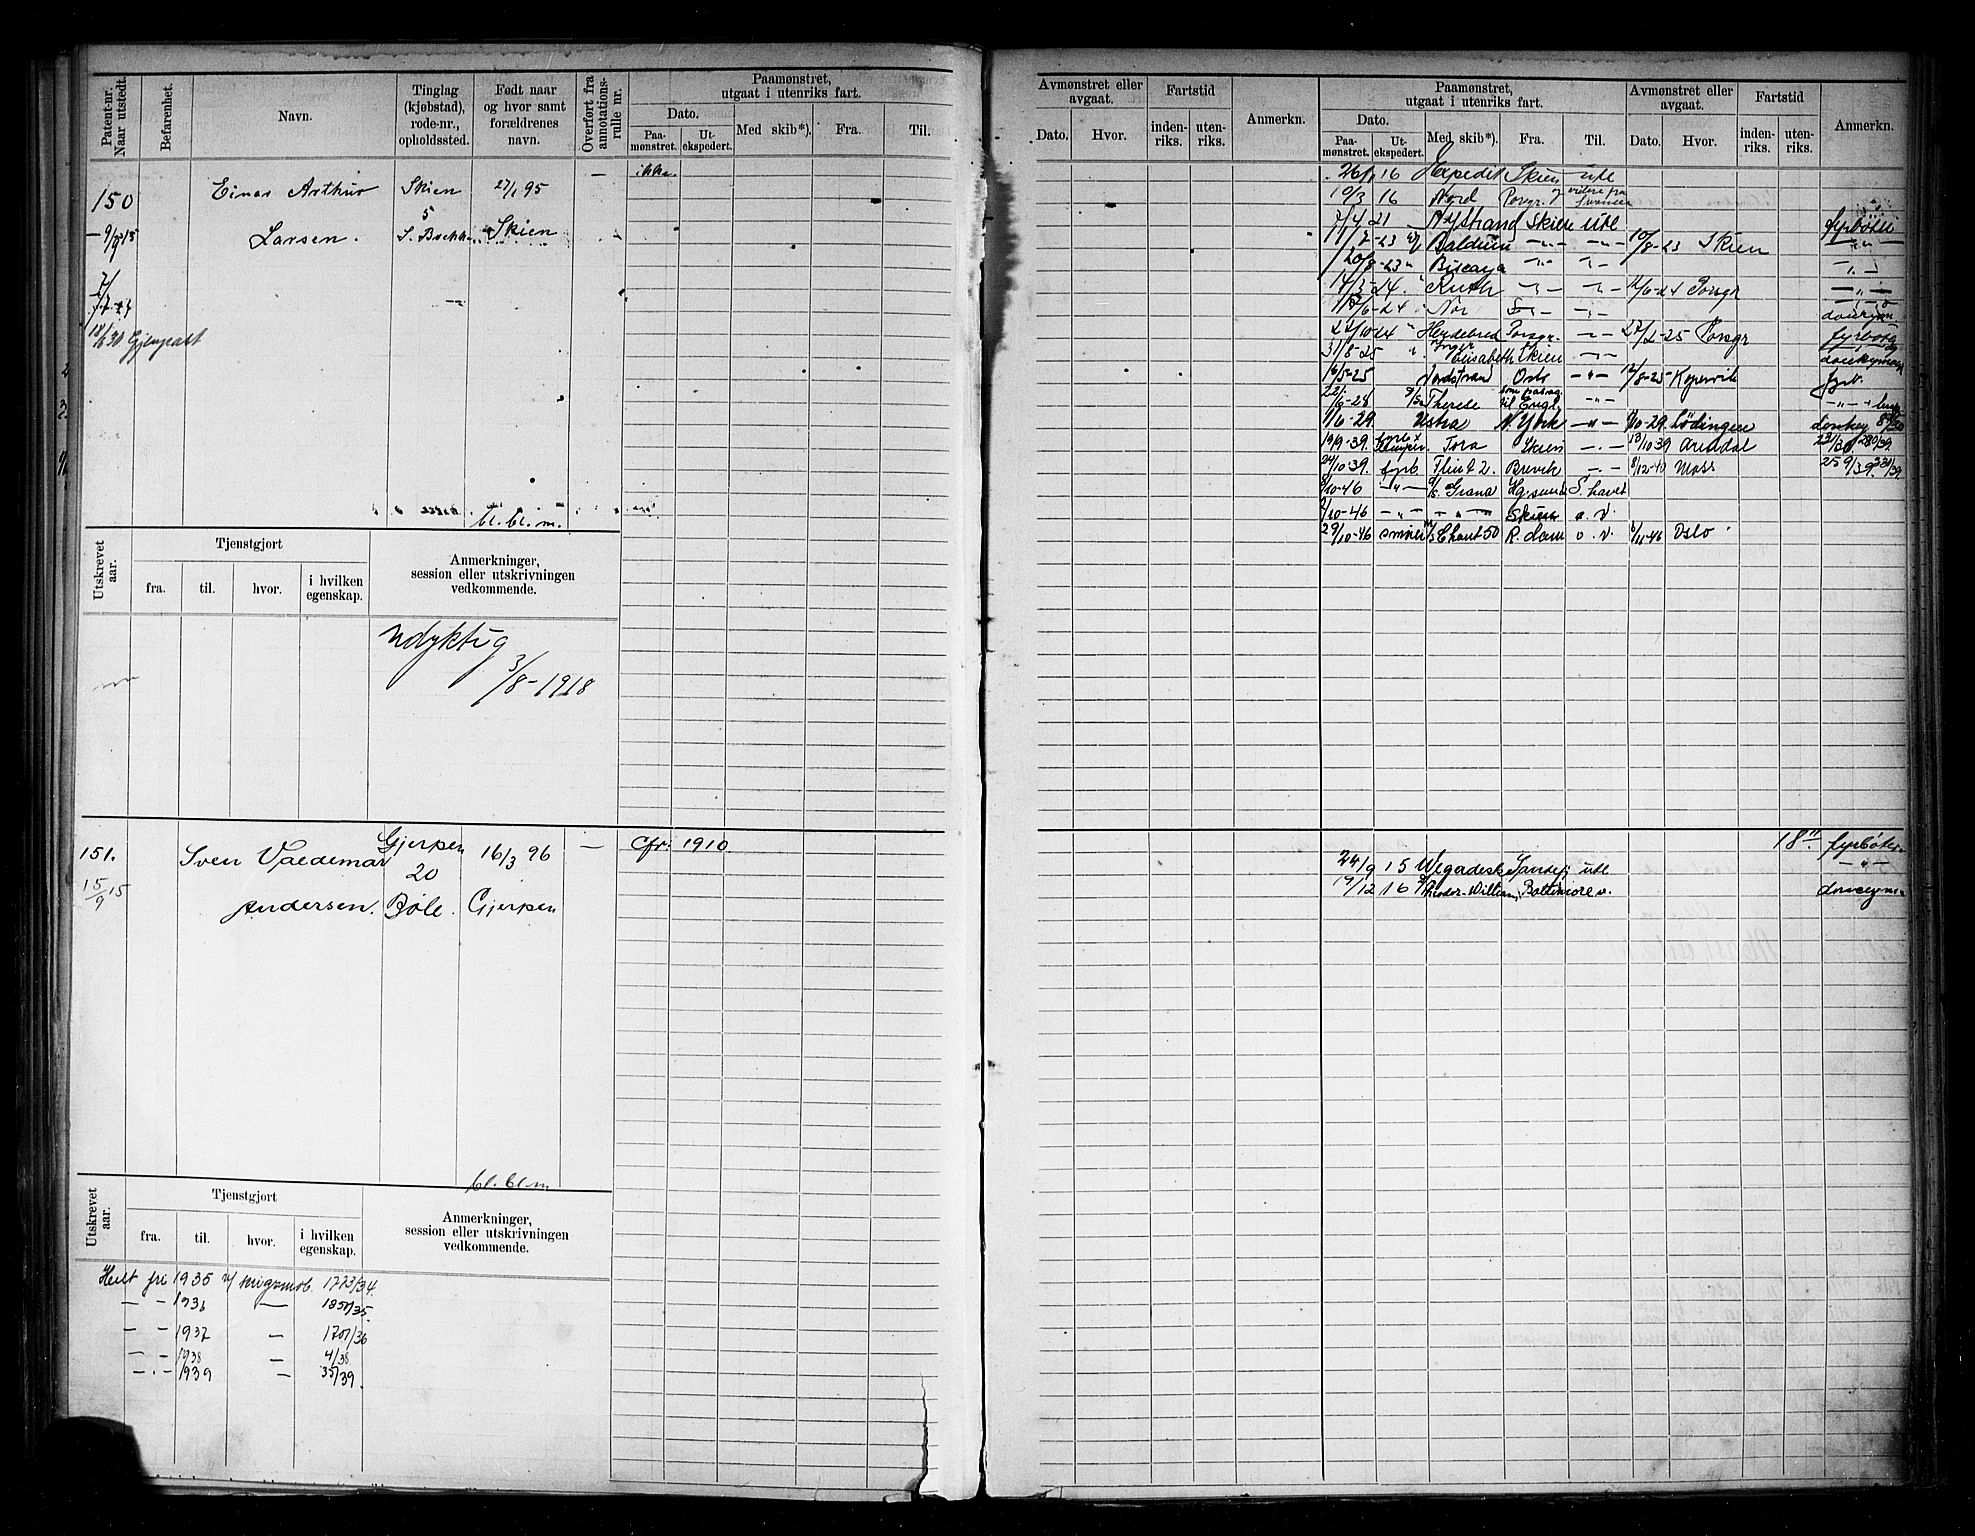 Patent-nr. Naar utstedt.
Befarenhet.
Navn.
Tinglag (kjøbstad), rode-nr., opholdssted.
Født naar og hvor samt forældrenes navn.
Overført fra annotations-rulle nr.
Paamønstret, utgaat i utenriks fart.
Dato.
Paa-mønstret.
Ut-ekspedert.
Med skib*).
Fra.
Til.
150
Einar Arthur
Skien
27/1 95
—
ikke
5
Larsen.
S. Brekke
Skien
18/6 30 Gjenpart
bl. bl. m.
Utskrevet aar.
Tjenstgjort
fra.
til.
hvor.
i hvilken egenskap.
Anmerkninger, session eller utskrivningen vedkommende.
Udyktig
3/8-1918
151.
Sven Valdemar
Gjerpen
16/3 96
—
Cfr. 1910
15/9 15
20
Andersen.
Bøle.
Gjerpen
bl. bl. m
Utskrevet aar.
Tjenstgjort
fra.
til.
hvor.
i hvilken egenskap.
Anmerkninger, session eller utskrivningen vedkommende.
Helt fri 1935 1773/34.
— — 1936 — 1850/35.
— — 1937 — 1701/36
— — 1938 — 4/38
— — 1939 — 35/39.
Avmønstret eller avgaat.
Dato.
Hvor.
Fartstid
inden-riks.
uten-riks.
Anmerkn.
Paamønstret, utgaat i utenriks fart.
Dato.
Paa-mønstret.
Ut-ekspedert.
Med skib*).
Fra.
Til.
Avmønstret eller avgaat.
Dato.
Hvor.
Fartstid
inden-riks.
uten-riks.
Anmerkn.
26/1 16 Expedit Skien utl
10/3 16 Nord Porsgr. videre fra
7/4 21 Nystrand Skien utl fyrbøter
11/7-23 Balduin —„— —„— 10/8-23 Skien —„—
20/8-23 Biscaya —„— —„— —„—
14/3-24 Ruth —„— —„— 11/6-24 Porsgr —„—
12/6-24 Nor —„— —„—
22/10-24 Heydebred Porsgr. —„— 27/2-25 Porsgr fyrbøter
31/8-25 Inger Elisabeth Skien —„—
16/5-25 Nordstrand Oslo —„— 12/8-25 Kopervik fyrb.
22/6-28 Therese til Engl. —„—
1/6-29. Ustra N. York —„— /10-29. Lødingen donkey
19/9-39. Tora Skien —„— 13/10 39 Arendal
24/10-39. fyrb Flint 2. Brevik —„— 8/12-40 Moss
/10-46 —„— Grana Hg.sund S. havet
9/10-46 —„— —„— Skien o. v.
29/10-46 smører Chant 50 R. dam o. v. /11-46 Oslo
18" fyrbøter.
24/9 15 Wegadesk Sandefj utl. —„—
17/12 16 Theodor William Baltimore v.